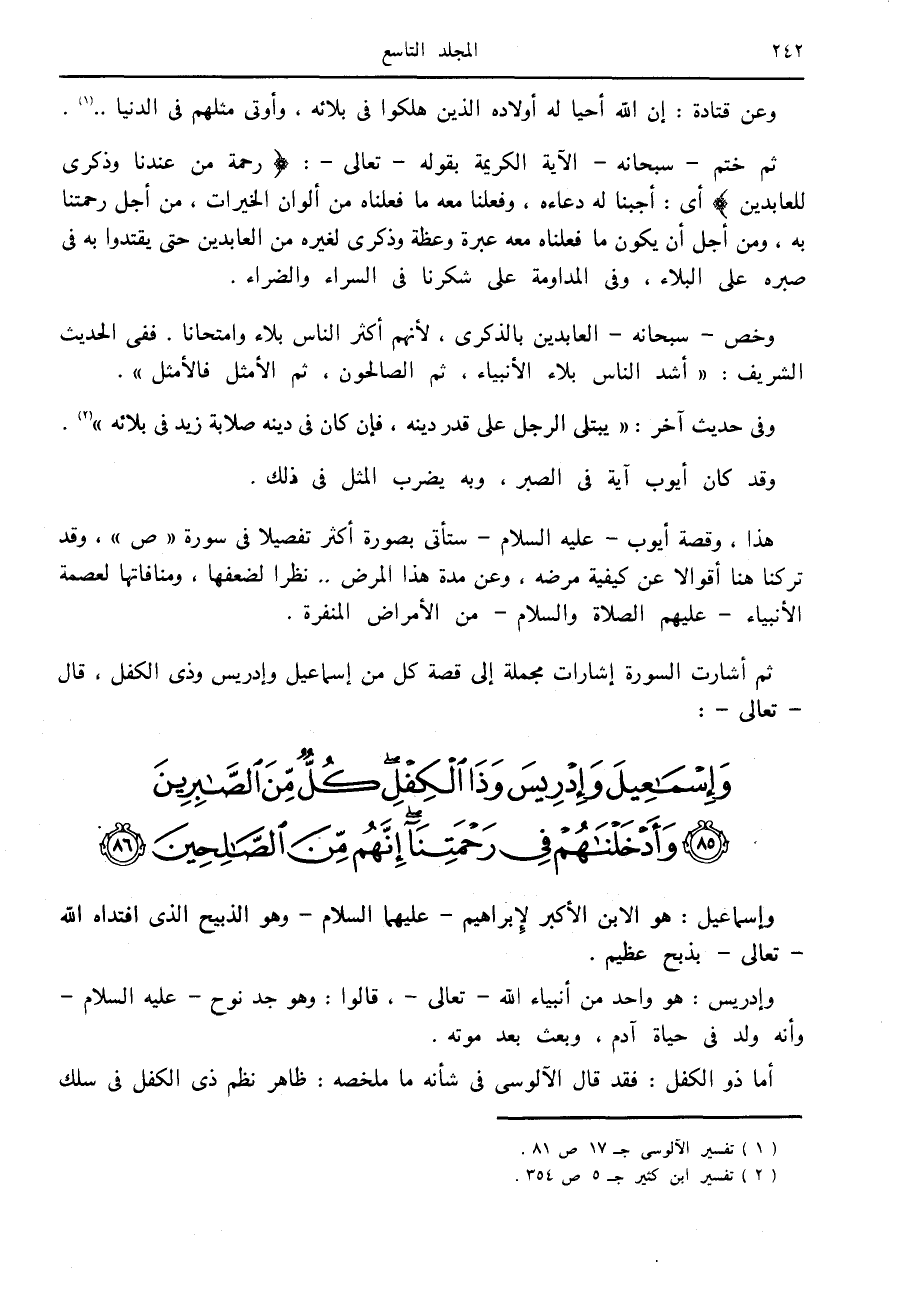 ٢٤٢ المجلد التاسع
وعن قتادة : إن الله أحيا له أولاده الذين هلكوا فى بلائه ، وأوتى مثلهم فى الدنيا ..(١) .
ثم ختم – سبحانه – الآية الكريمة بقوله – تعالى – : ﴿ رحمة من عندنا وذكرى
للعابدين ﴾ أى : أجبنا له دعاءه ، وفعلنا معه ما فعلناه من ألوان الخيرات ، من أجل رحمتنا
به ، ومن أجل أن يكون ما فعلناه معه عبرة وعظة وذكرى لغيره من العابدين حتى يقتدوا به فى
صبره على البلاء ، وفى المداومة على شكرنا فى السراء والضراء .
وخص – سبحانه – العابدين بالذكرى ، لأنهم أكثر الناس بلاء وامتحانا . ففى الحديث
الشريف : « أشد الناس بلاء الأنبياء ، ثم الصالحون ، ثم الأمثل فالأمثل » .
وفى حديث آخر : « يبتلى الرجل على قدر دينه ، فإن كان فى دينه صلابة زيد فى بلائه »(٢) .
وقد كان أيوب آية فى الصبر ، وبه يضرب المثل فى ذلك .
هذا ، وقصة أيوب – عليه السلام – ستأتى بصورة أكثر تفصيلا فى سورة « ص » ، وقد
تركنا هنا أقوالا عن كيفية مرضه ، وعن مدة هذا المرض .. نظرا لضعفها ، ومنافاتها لعصمة
الأنبياء – عليهم الصلاة والسلام – من الأمراض المنفرة .
ثم أشارت السورة إشارات مجملة إلى قصة كل من إسماعيل وإدريس وذى الكفل ، قال
– تعالى – :
وَإِسْمَٰعِيلَ وَإِدْرِيسَ وَذَا ٱلْكِفْلِ ۖ كُلٌّ مِّنَ ٱلصَّٰبِرِينَ
﴿٨٥﴾ وَأَدْخَلْنَٰهُمْ فِى رَحْمَتِنَآ ۖ إِنَّهُم مِّنَ ٱلصَّٰلِحِينَ ﴿٨٦﴾
وإسماعيل : هو الابن الأكبر لإبراهيم – عليهما السلام – وهو الذبيح الذى افتداه الله
– تعالى – بذبح عظيم .
وإدريس : هو واحد من أنبياء الله – تعالى – ، قالوا : وهو جد نوح – عليه السلام –
وأنه ولد فى حياة آدم ، وبعث بعد موته .
أما ذو الكفل : فقد قال الآلوسى فى شأنه ما ملخصه : ظاهر نظم ذى الكفل فى سلك
( ١ ) تفسير الآلوسى جـ ١٧ ص ٨١ .
( ٢ ) تفسير ابن كثير جـ ٥ ص ٣٥٤ .